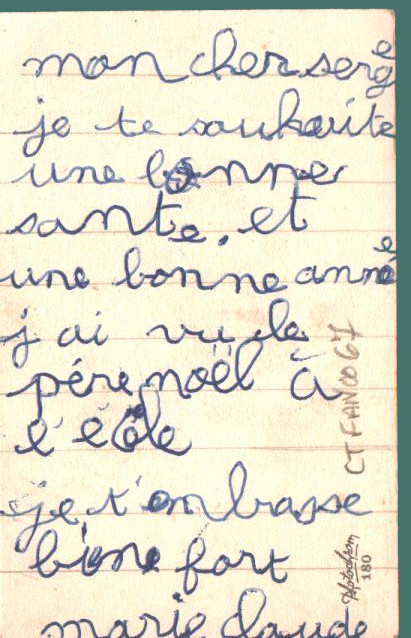 mon cher serge
je te souhaite
une bonner
sante. et
une bonne anné
j ai vu le
père noël à
l'école
je t'ombrasse
bien fort
marie claude
CTFAN0067
Photochrom
180